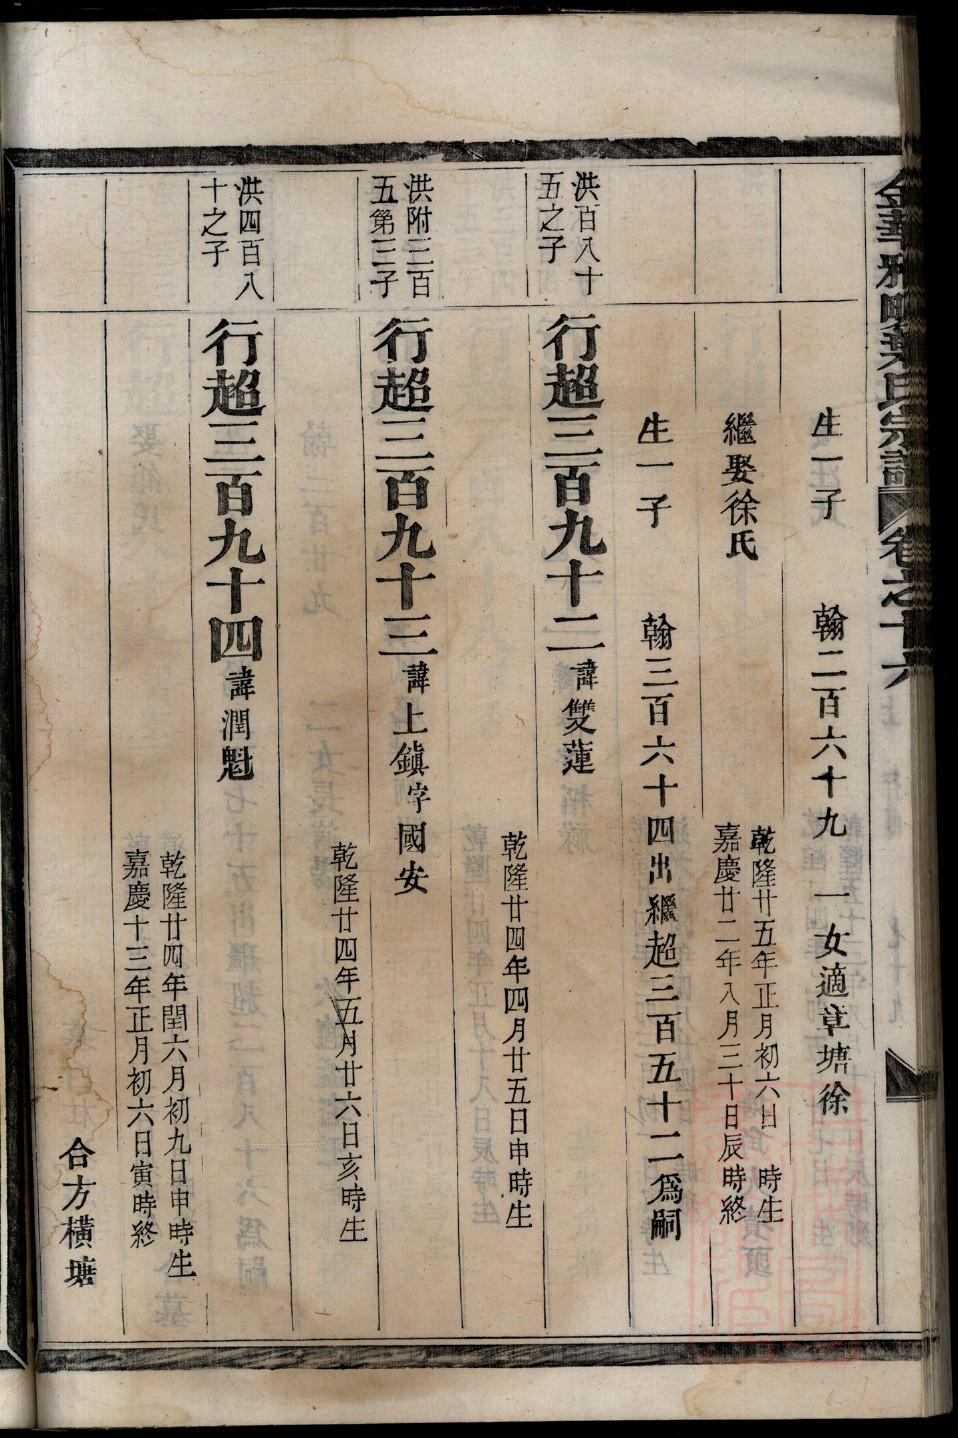 生一子　翰二百六十九　一女適章塘徐
繼娶徐氏
乾隆廿五年正月初六日　時生
嘉慶廿二年八月三十日辰時終
生一子　翰三百六十四出繼超三百五十二爲嗣
洪百八十
五之子
行超三百九十二諱雙蓮
乾隆廿四年四月廿五日申時生
洪附三百
五第三子
行超三百九十三諱上鎮字國安
乾隆廿四年五月廿六日亥時生
洪四百八
十之子
行超三百九十四諱潤魁
乾隆廿四年閏六月初九日申時生
嘉慶十三年正月初六日寅時終
合方橫塘